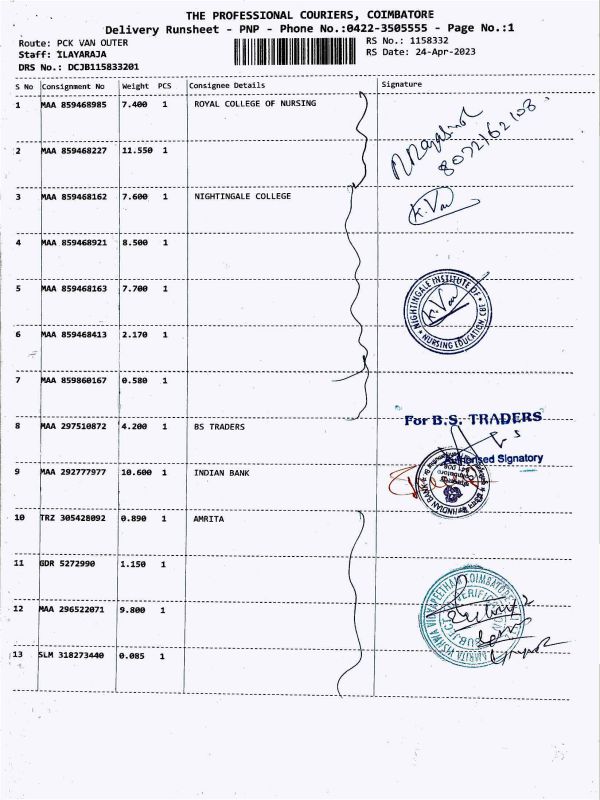 THE PROFESSIONAL COURIERS, COIMBATORE
Delivery Runsheet - PNP - Phone No.:0422-3505555 - Page No.:1
Route: PCK VAN OUTER
RS No.: 1158332
Staff: ILAYARAJA
RS Date: 24-Apr-2023
DRS No.: DCJB115833201
S No Consignment No Weight PCS Consignee Details Signature
1 MAA 859468985 7.400 1 ROYAL COLLEGE OF NURSING
8072162108
2 MAA 859468227 11.550 1
3 MAA 859468162 7.600 1 NIGHTINGALE COLLEGE
K. Van
4 MAA 859468921 8.500 1
5 MAA 859468163 7.700 1
NIGHTINGALE INSTITUTE OF NURSING EDUCATION, CBE
K. Van
6 MAA 859468413 2.170 1
7 MAA 859860167 0.580 1
8 MAA 297510872 4.200 1 BS TRADERS
For B.S. TRADERS
Authorised Signatory
9 MAA 292777977 10.600 1 INDIAN BANK
INDIAN BANK
10 TRZ 305428092 0.890 1 AMRITA
11 GDR 5272990 1.150 1
12 MAA 296522071 9.800 1
AMRITA VISHWA VIDYAPEETHAM COIMBATORE
SUBJECT
VERIFICATION
13 SLM 318273440 0.085 1